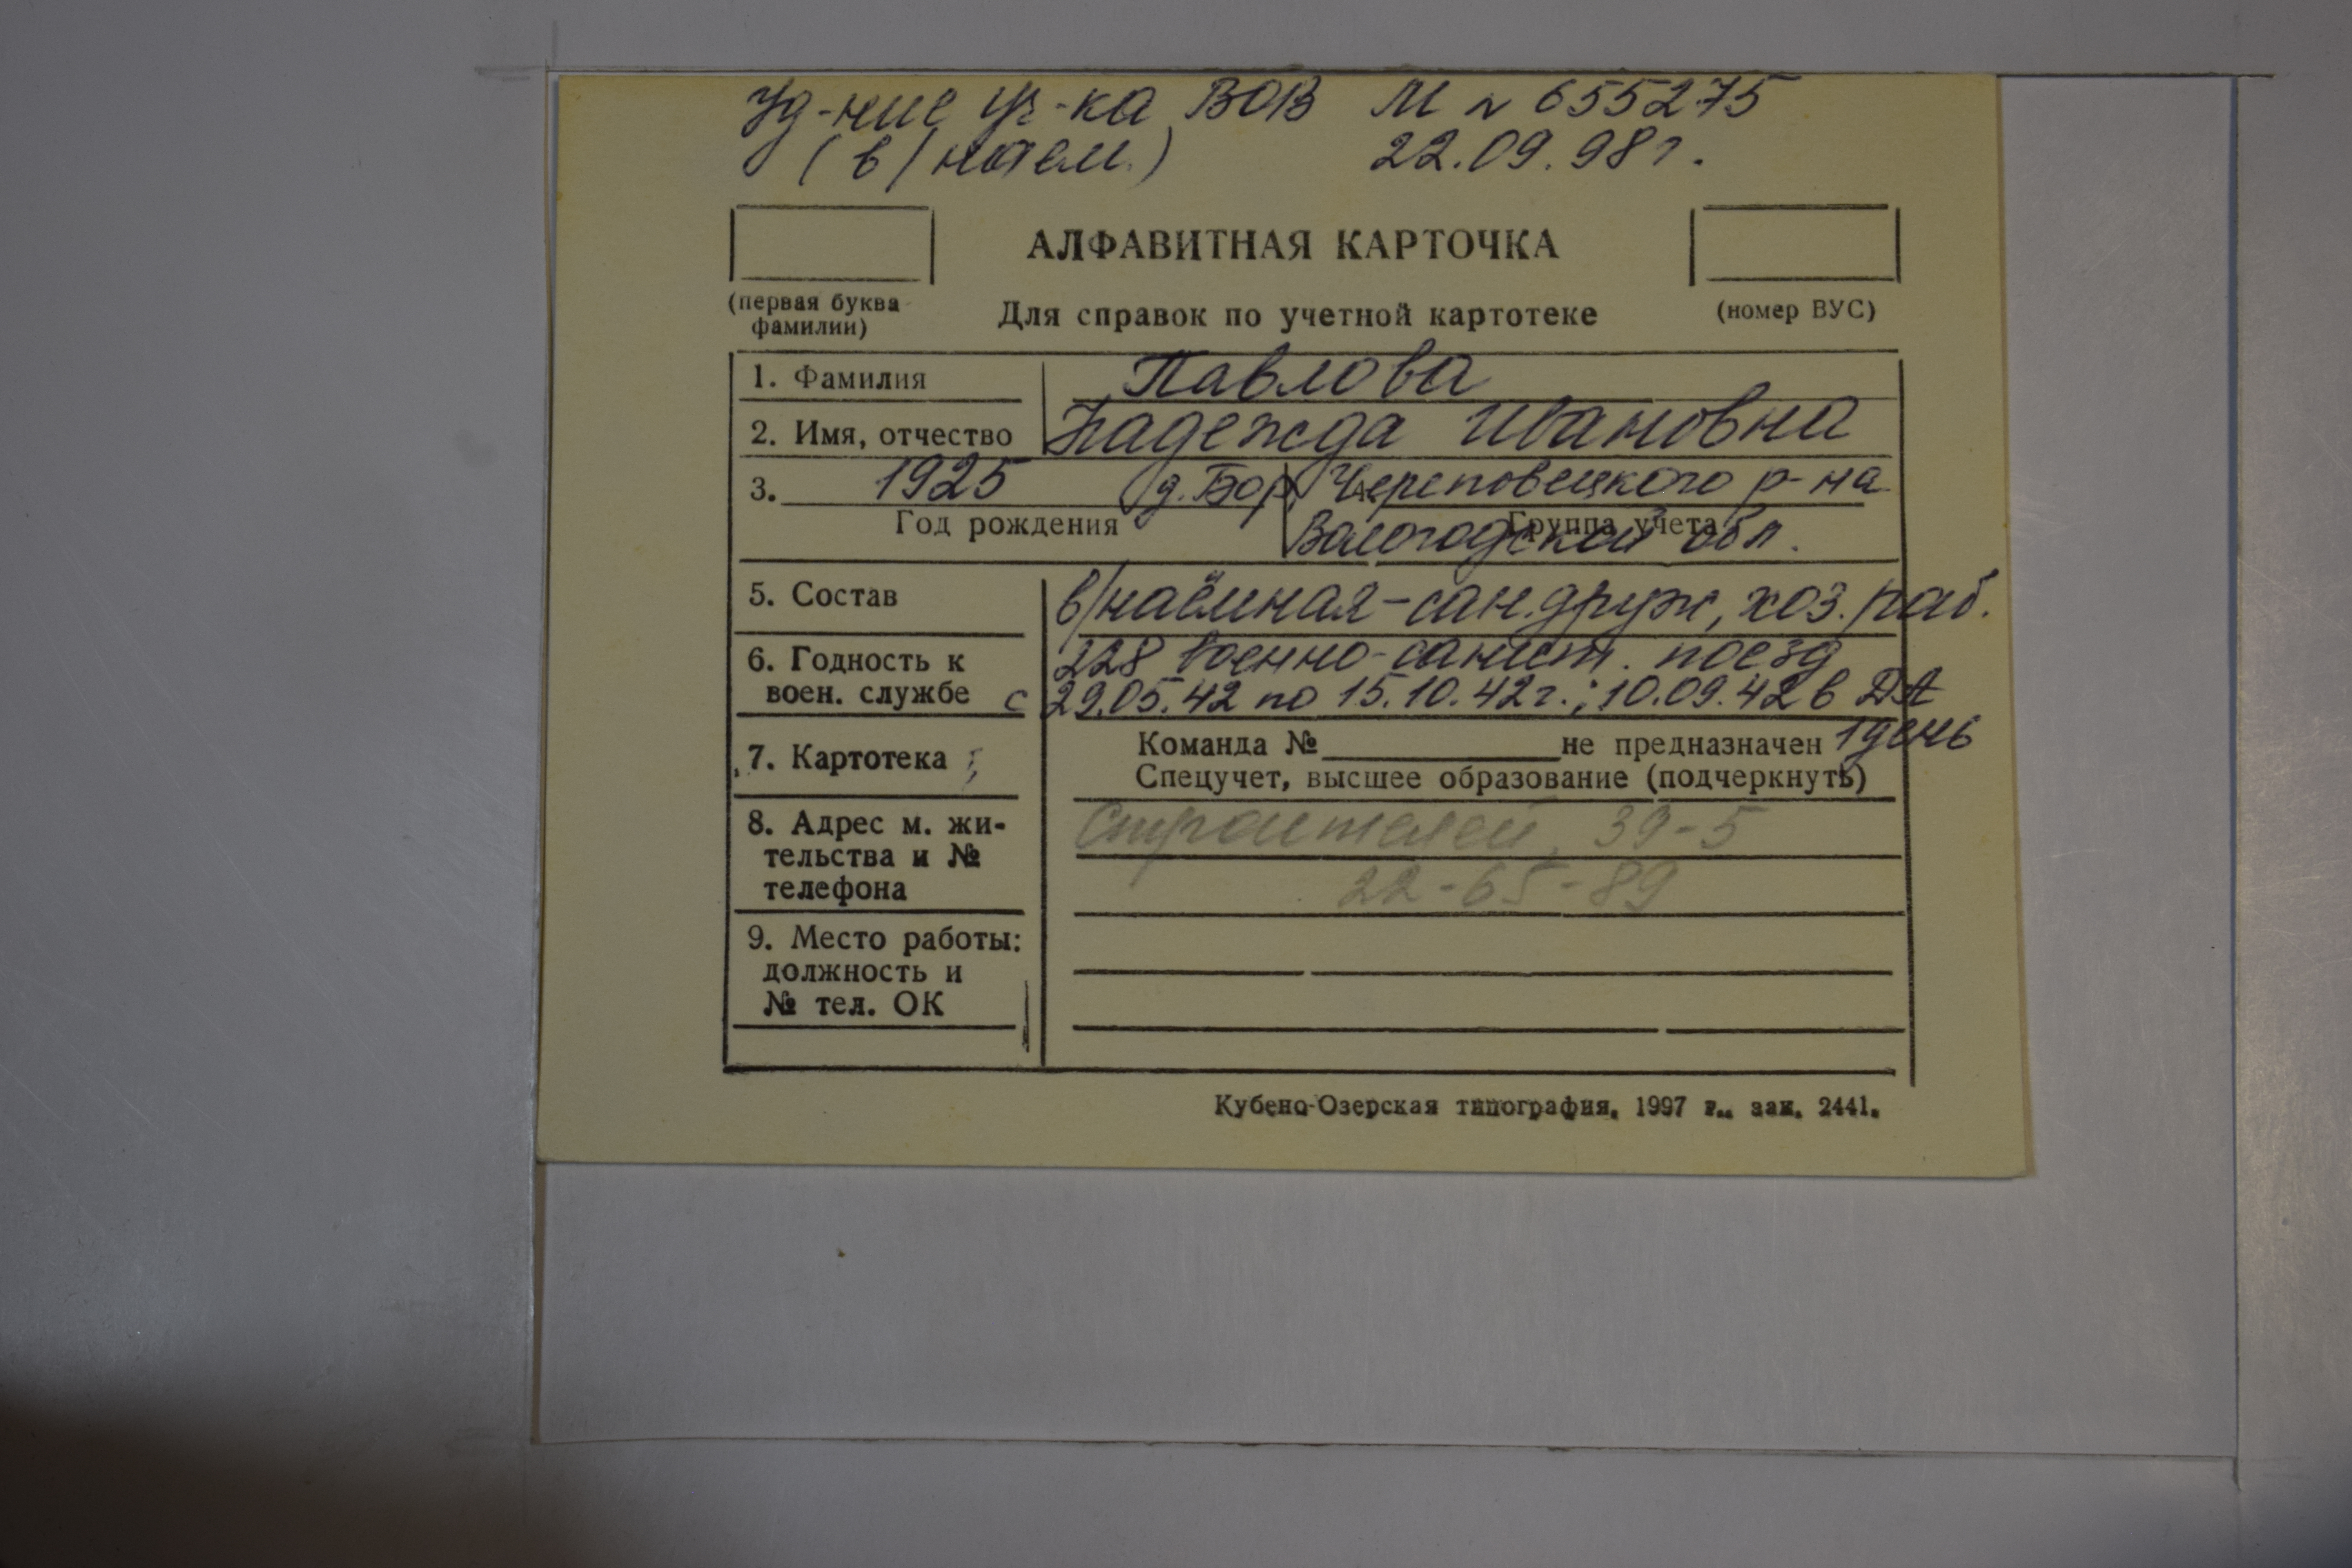 Уд-ние уч-ка ВОВ М № 655275
(в/наем.) 22.09.98г.
АЛФАВИТНАЯ КАРТОЧКА
(первая буква фамилии)
Для справок по учетной картотеке
(номер ВУС)
1. Фамилия Павлова
2. Имя, отчество Надежда Ивановна
3. 1925 д. Бор, Череповецкого р-на
Год рождения Группа учета
Вологодской обл.
5. Состав в/наёмная-сан.друж, хоз.раб.
6. Годность к 228 военно-санит. поезд
воен. службе с 29.05.42 по 15.10.42г.; 10.09.42 в ДА
1 день
7. Картотека Команда № не предназначен
Спецучет, высшее образование (подчеркнуть)
8. Адрес м. жи- Строителей, 39-5
тельства и №
телефона 22-65-89
9. Место работы:
должность и
№ тел. ОК
Кубено-Озерская типография. 1997 г.. зак. 2441.